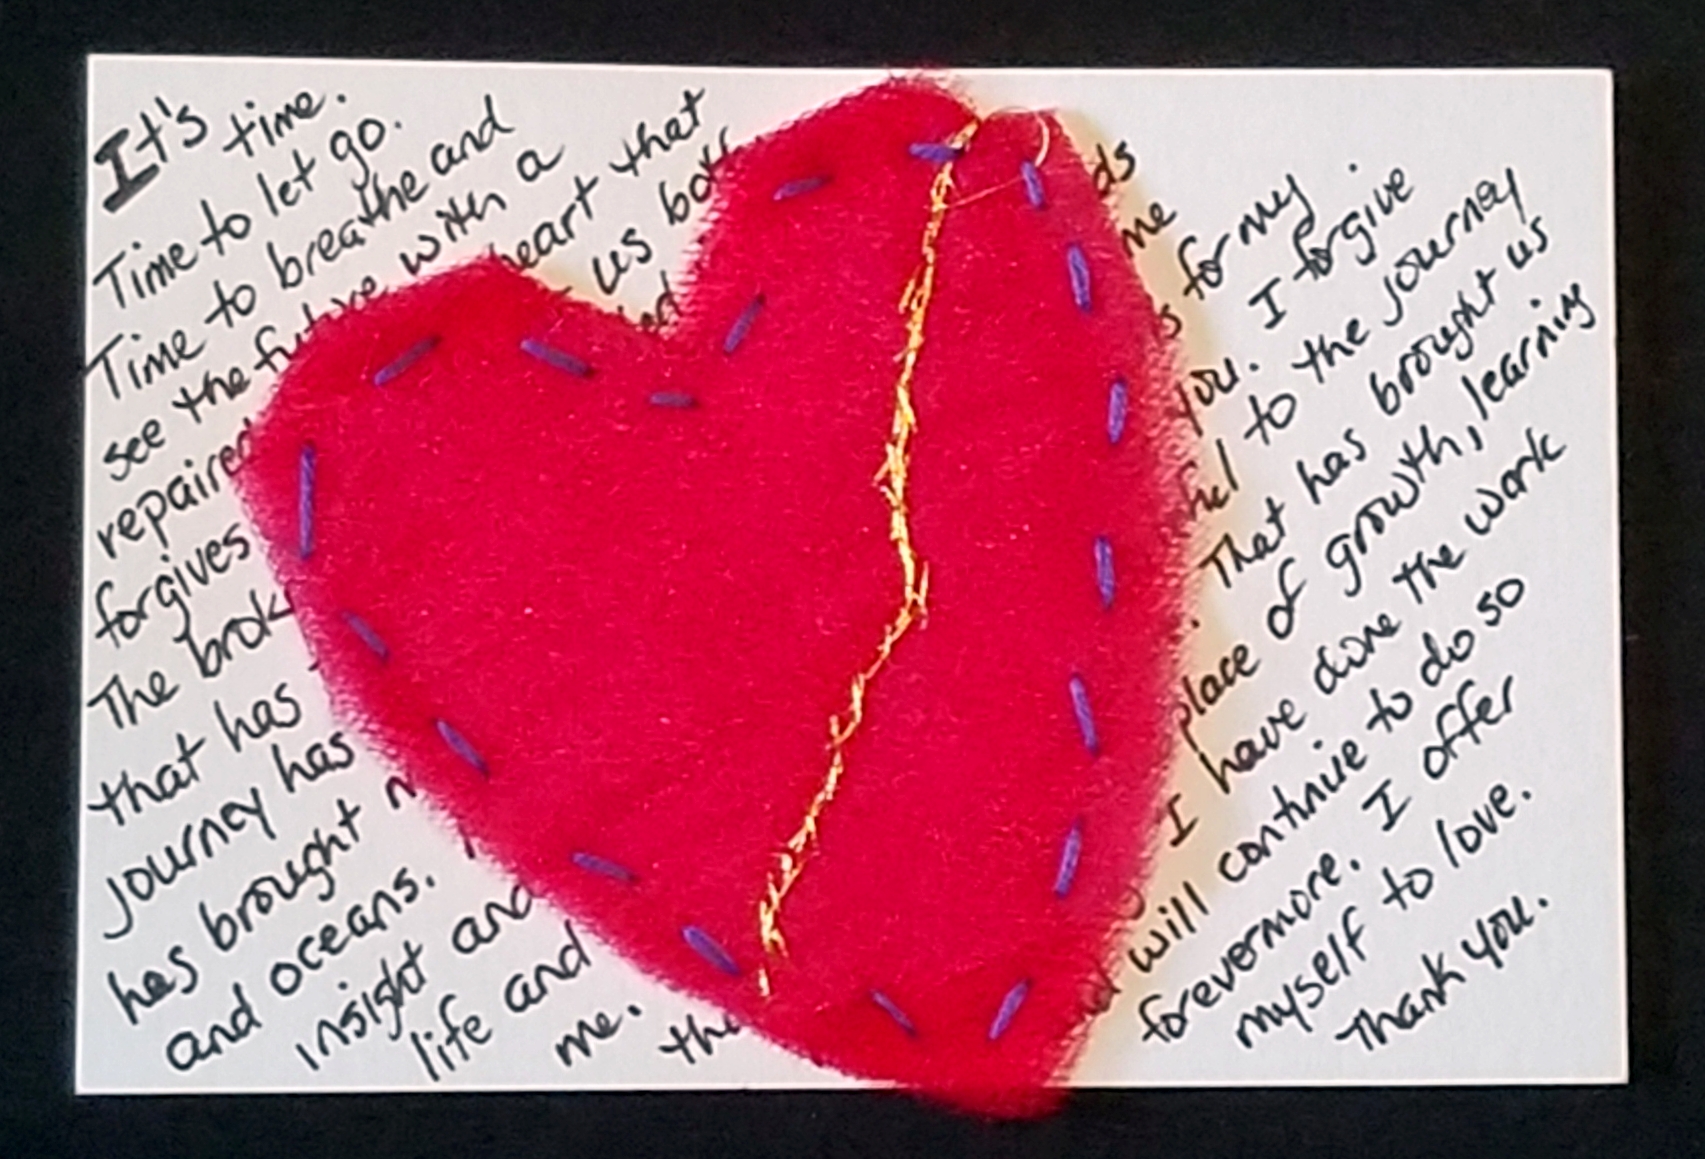 It's time.
Time to let go.
Time to breathe and
see the future with a
repaired heart that
forgives us both
The
that has
journey has
has brought
and oceans.
insight and
life and
me.
me
for my
you. I forgive
to the journey
That has brought us
place of growth, learning
I have done the work
will continue to do so
forevermore. I offer
myself to love.
Thank you.